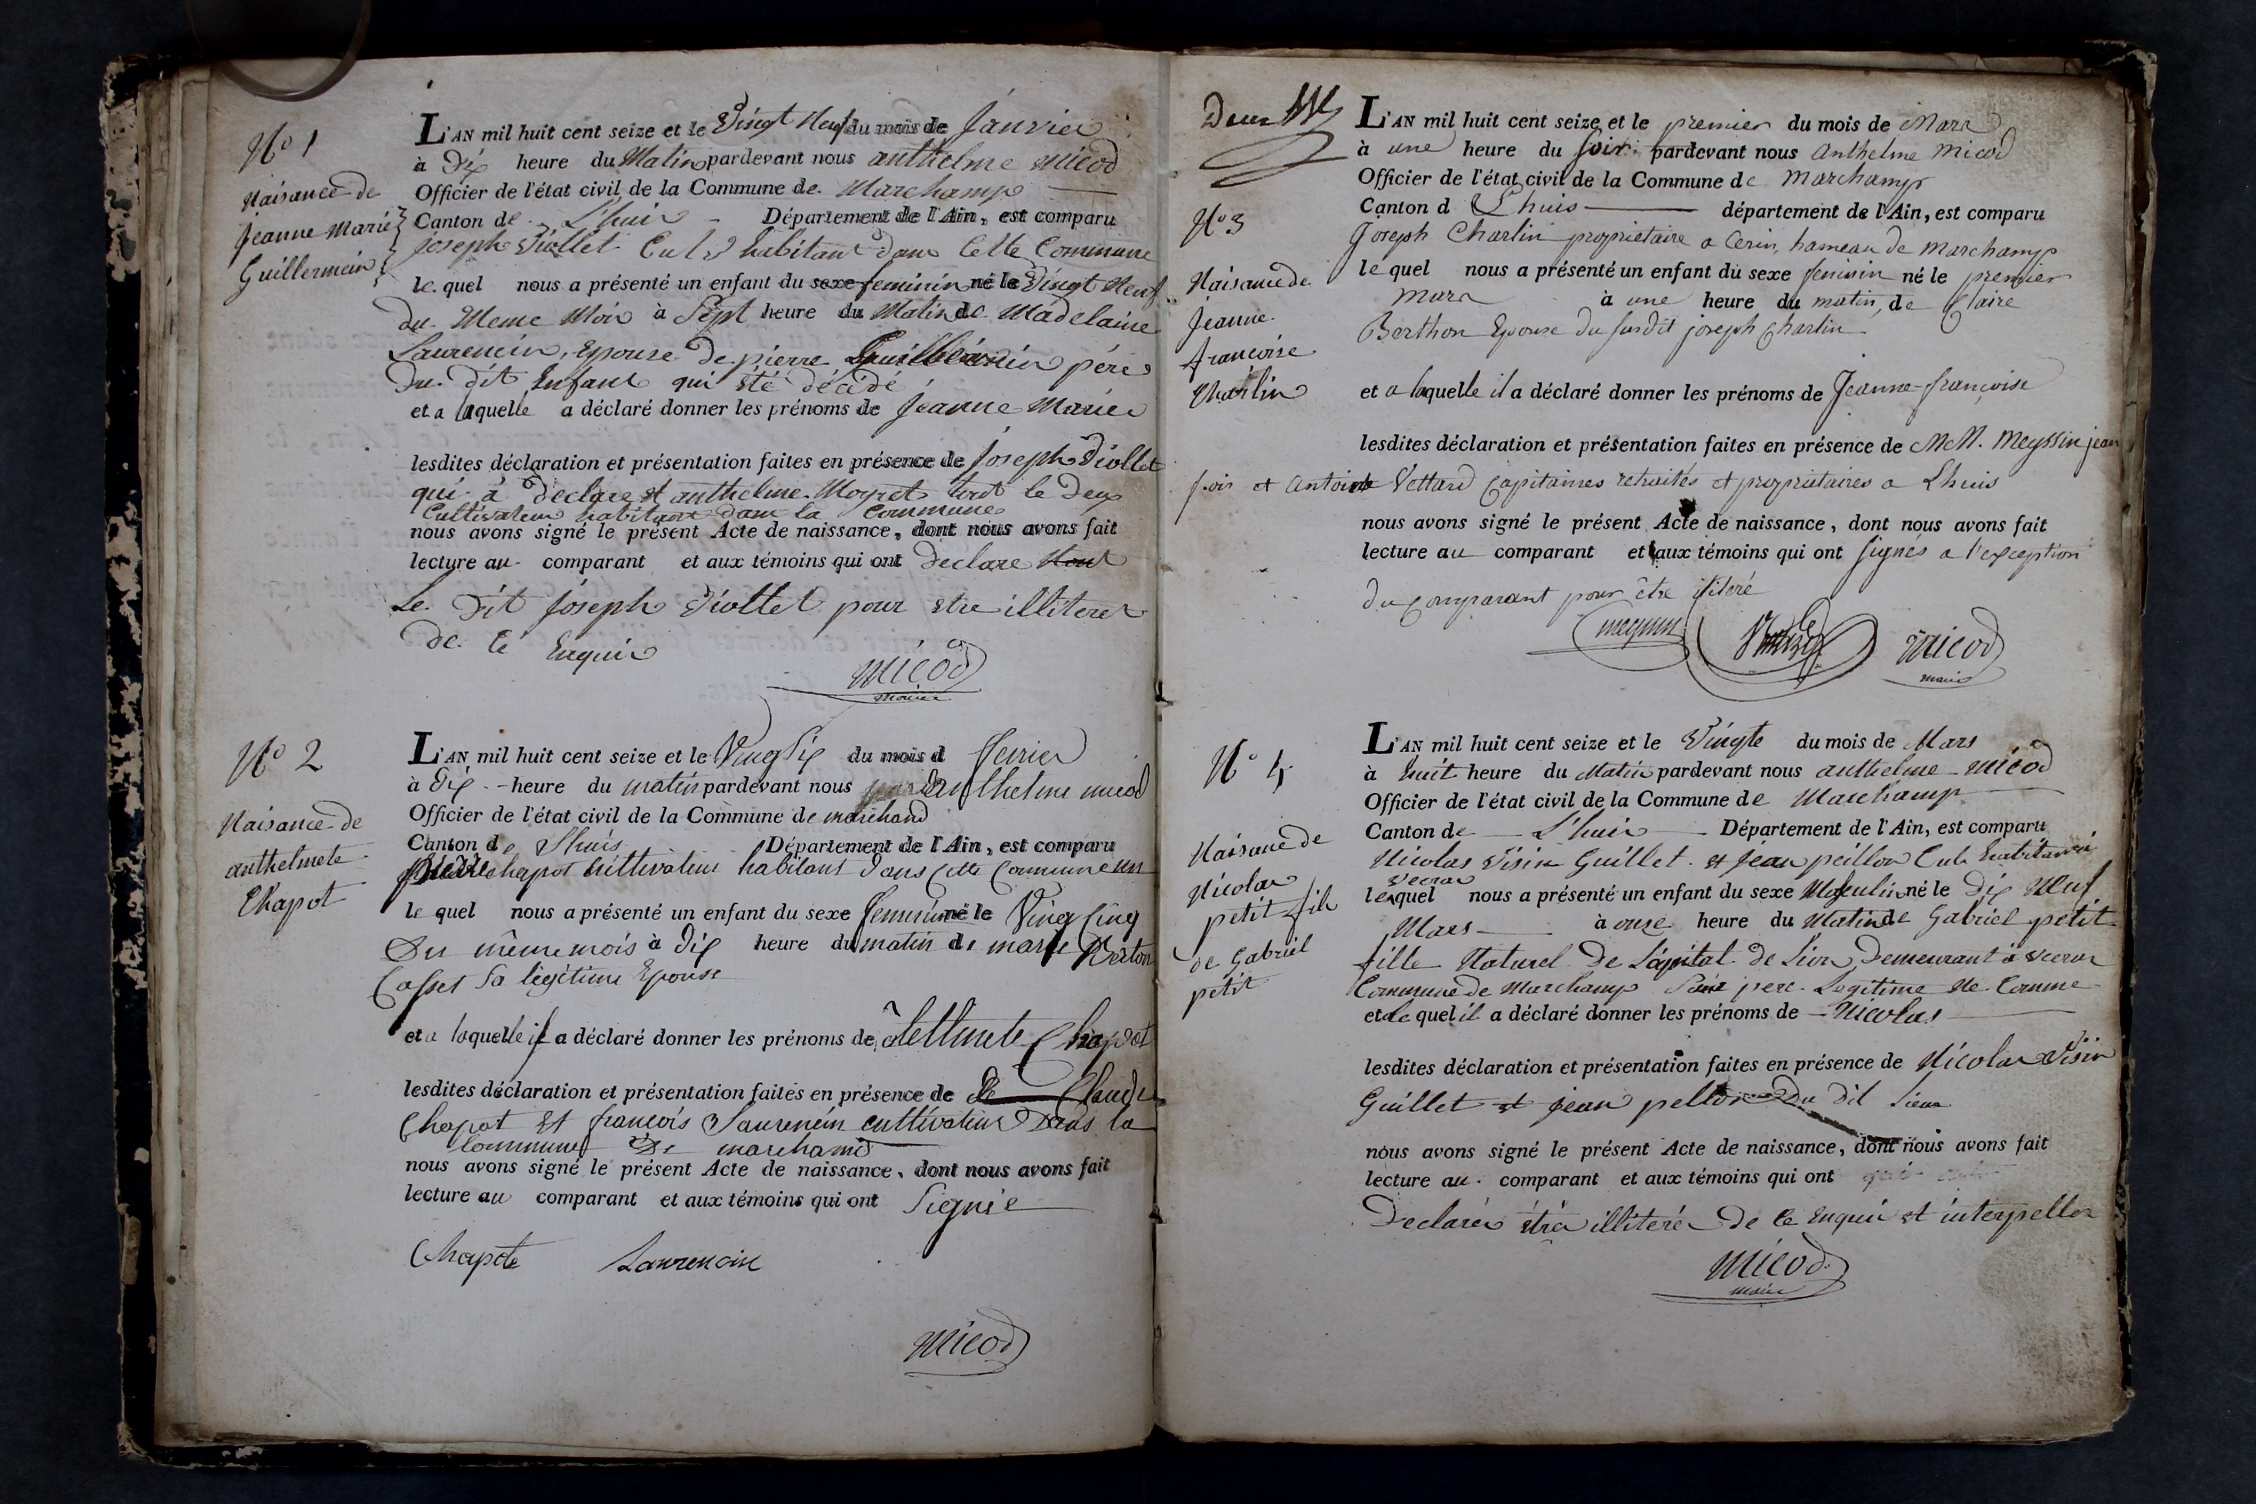 N.o 1
Naisance de
Jeanne Marie
Guillermein
L'AN mil huit cent seize et le Vingt Neuf du mois de Janvier
à Dix heure du Matin pardevant nous anthelme micod
Officier de l'état civil de la Commune de Marchamp
Canton de L'huis Département de l'Ain, est comparu
joseph Viollet Cult habitant dans Cette Commune
le quel nous a présenté un enfant du sexe feminin né le Vingt Neuf
du Meme Mois à Sept heure du Matin de Madelaine
Laurencin, Epouse de pierre Guillermin père
du dit Enfant qui été décédé
et a laquelle a déclaré donner les prénoms de Jeanne Marie
lesdites déclaration et présentation faites en présence de Joseph Viollet
qui a declare et anthelme Moyret tout le deux
Cultivateur habitant dans la Commune
nous avons signé le présent Acte de naissance, dont nous avons fait
lecture au comparant et aux témoins qui ont Declare
Le Dit Joseph Viollet pour etre illiterer
de Ce Enquis
micod
maire
N.o 2
Naisance de
anthelmete
Chapot
L'AN mil huit cent seize et le Vingt Six du mois d fevrier
à Dix heure du matin pardevant nous anthelme micod
Officier de l'état civil de la Commune de marchand
Canton de Lhuis Département de l'Ain, est comparu
pierre chapot Cultivateur habitant dans Cette Commune
le quel nous a présenté un enfant du sexe feminin né le Ving Cinq
Du même mois à Dix heure du matin de marie
Sa legitime Epouse
et a laquelle il a déclaré donner les prénoms de Chapot
lesdites déclaration et présentation faites en présence de Claude
Chapot Et françois Laurencin cultivateur Dans la
Commune De marchamd
nous avons signé le présent Acte de naissance, dont nous avons fait
lecture au comparant et aux témoins qui ont Signié
Chapot Laurencin
micod
Deux
N.o 3
Naisance de
Jeanne
francoise
Charlin
L'AN mil huit cent seize et le premier du mois de Mars
à une heure du soir pardevant nous Anthelme Micod
Officier de l'état civil de la Commune de Marchamp
Canton d Lhuis département de l'Ain, est comparu
Joseph Charlin propriétaire a Cerin, hameau de Marchamp
le quel nous a présenté un enfant du sexe feminin né le premier
Mars à une heure du matin, de Claire
Berthon Epouse du susdit joseph Charlin
et a laquelle il a déclaré donner les prénoms de Jeanne-françoise
lesdites déclaration et présentation faites en présence de MM. Meyssin jean
fois et Antoine Vettard Capitaines retraités et propriétaires a Lhuis
nous avons signé le présent Acte de naissance, dont nous avons fait
lecture au comparant et aux témoins qui ont signés a l'exception
du comparant pour être illiteré
micod
maire
N.o 4
Naisance de
Nicolas
petit fils
de Gabriel
petit
L'AN mil huit cent seize et le Vingte du mois de Mars
à huit heure du Matin pardevant nous anthelme micod
Officier de l'état civil de la Commune de Marchamp
Canton de L'huis Département de l'Ain, est comparu
Nicolas Visin Guillet et jean peillon Cult habitant
lequel nous a présenté un enfant du sexe Masculin né le Dix Neuf
Mars à onze heure du Matin de Gabriel petit
fille Naturel de Lopital de Lion Demeurant à
Commune de Marchamp pere Legitime
et le quel il a déclaré donner les prénoms de Nicolas
lesdites déclaration et présentation faites en présence de Nicolas Visin
Guillet et jean pellon Du dit Lieux
nous avons signé le présent Acte de naissance, dont nous avons fait
lecture au comparant et aux témoins qui ont
Declarer être illiteré De Ce Enquis et interpeller
micod
maire